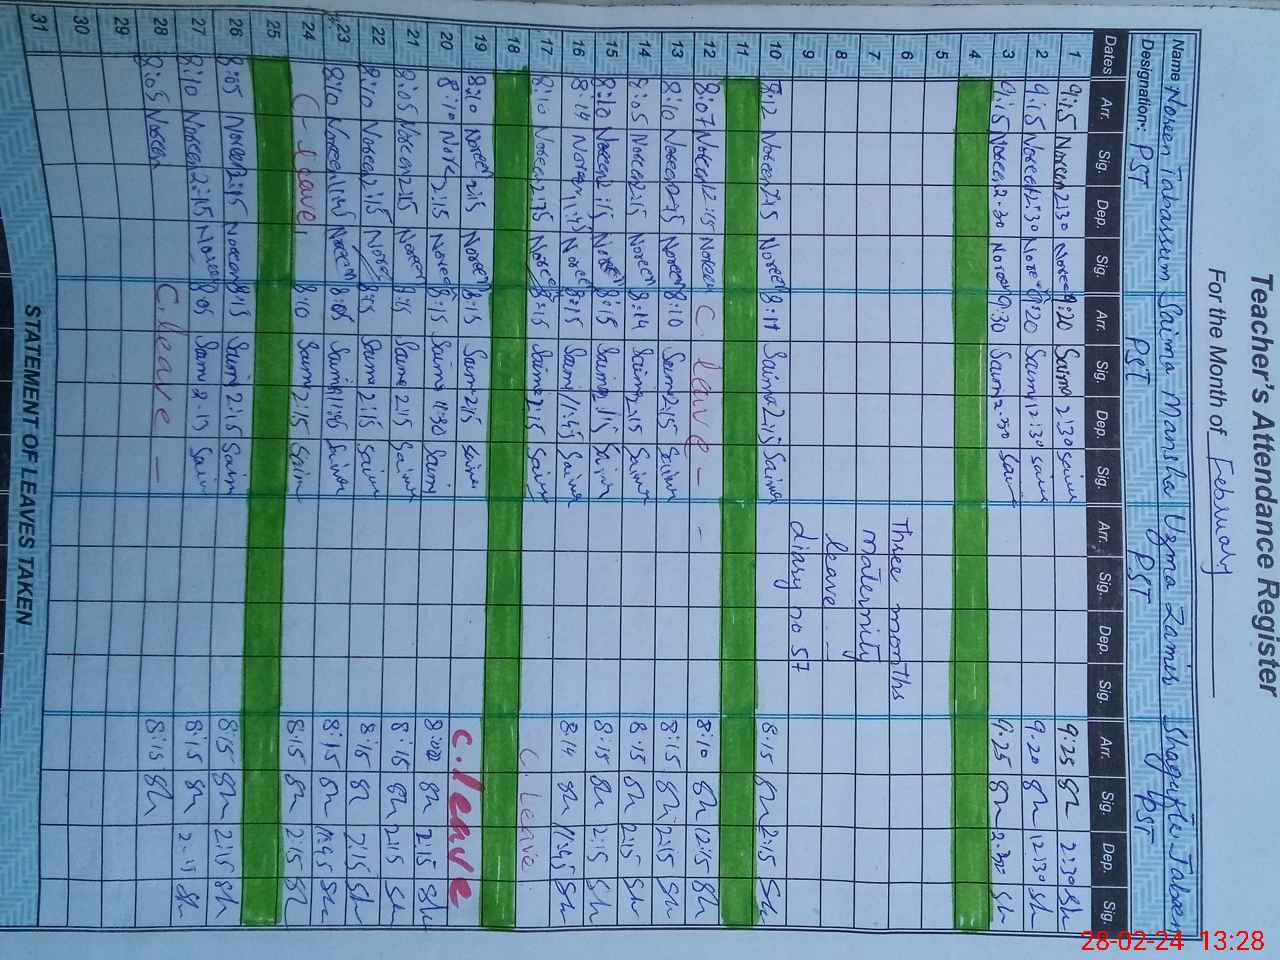 Teacher's Attendance Register
For the Month of February
Name: Noreen Tabassum Saima Mansha Uzma Zamir Shagufta Jabeen
Designation: PST PST PST PST
Dates Arr. Sig. Dep. Sig. Arr. Sig. Dep. Sig. Arr. Sig. Dep. Sig. Arr. Sig. Dep. Sig.
1 9:15 Noreen 2:30 Noreen 9:20 Saima 2:30 Saima 9:25 Sh 2:30 Sh
2 9:15 Noreen 12:30 Noreen 9:20 Saima 12:30 Saima 9:20 Sh 12:30 Sh
3 9:15 Noreen 2:30 Noreen 9:30 Saima 2:30 Saima 9:25 Sh 2:30 Sh
4
5
6 Three months
7 maternity
8 leave
9 diary no 57
10 8:12 Noreen 2:15 Noreen 8:11 Saima 2:15 Saima 8:15 Sh 2:15 Sh
11
12 8:07 Noreen 12:15 Noreen C. leave - 8:10 Sh 12:15 Sh
13 8:10 Noreen 2:15 Noreen 8:10 Saima 2:15 Saima 8:15 Sh 2:15 Sh
14 8:05 Noreen 2:15 Noreen 8:14 Saima 2:15 Saima 8:15 Sh 2:15 Sh
15 8:10 Noreen 2:15 Noreen 8:15 Saima 2:15 Saima 8:15 Sh 2:15 Sh
16 8:14 Noreen 11:45 Noreen 8:15 Saima 11:45 Saima 8:14 Sh 11:45 Sh
17 8:10 Noreen 2:15 Noreen 8:15 Saima 2:15 Saima C. Leave.
18
19 8:10 Noreen 2:15 Noreen 8:15 Saima 2:15 Saima C. leave
20 8:10 Noreen 2:15 Noreen 8:15 Saima Saima Sh 2:15 Sh
21 8:05 Noreen 2:15 Noreen 8:15 Saima 2:15 Saima 8:15 Sh 2:15 Sh
22 8:10 Noreen 2:15 Noreen 8:15 Saima 2:15 Saima 8:15 Sh 2:15 Sh
23 8:10 Noreen 11:45 Noreen 8:05 Saima 11:45 Saima 8:15 Sh 11:45 Sh
24 C - leave 8:10 Saima 2:15 Saima 8:15 Sh 2:15 Sh
25
26 8:05 Noreen 2:15 Noreen 8:15 Saima 2:15 Saima 8:15 Sh 2:15 Sh
27 8:10 Noreen 2:15 Noreen 8:05 Saima 2:15 Saima 8:15 Sh 2:15 Sh
28 8:05 Noreen C. leave - 8:15 Sh
29
30
31
STATEMENT OF LEAVES TAKEN
28-02-24 13:28